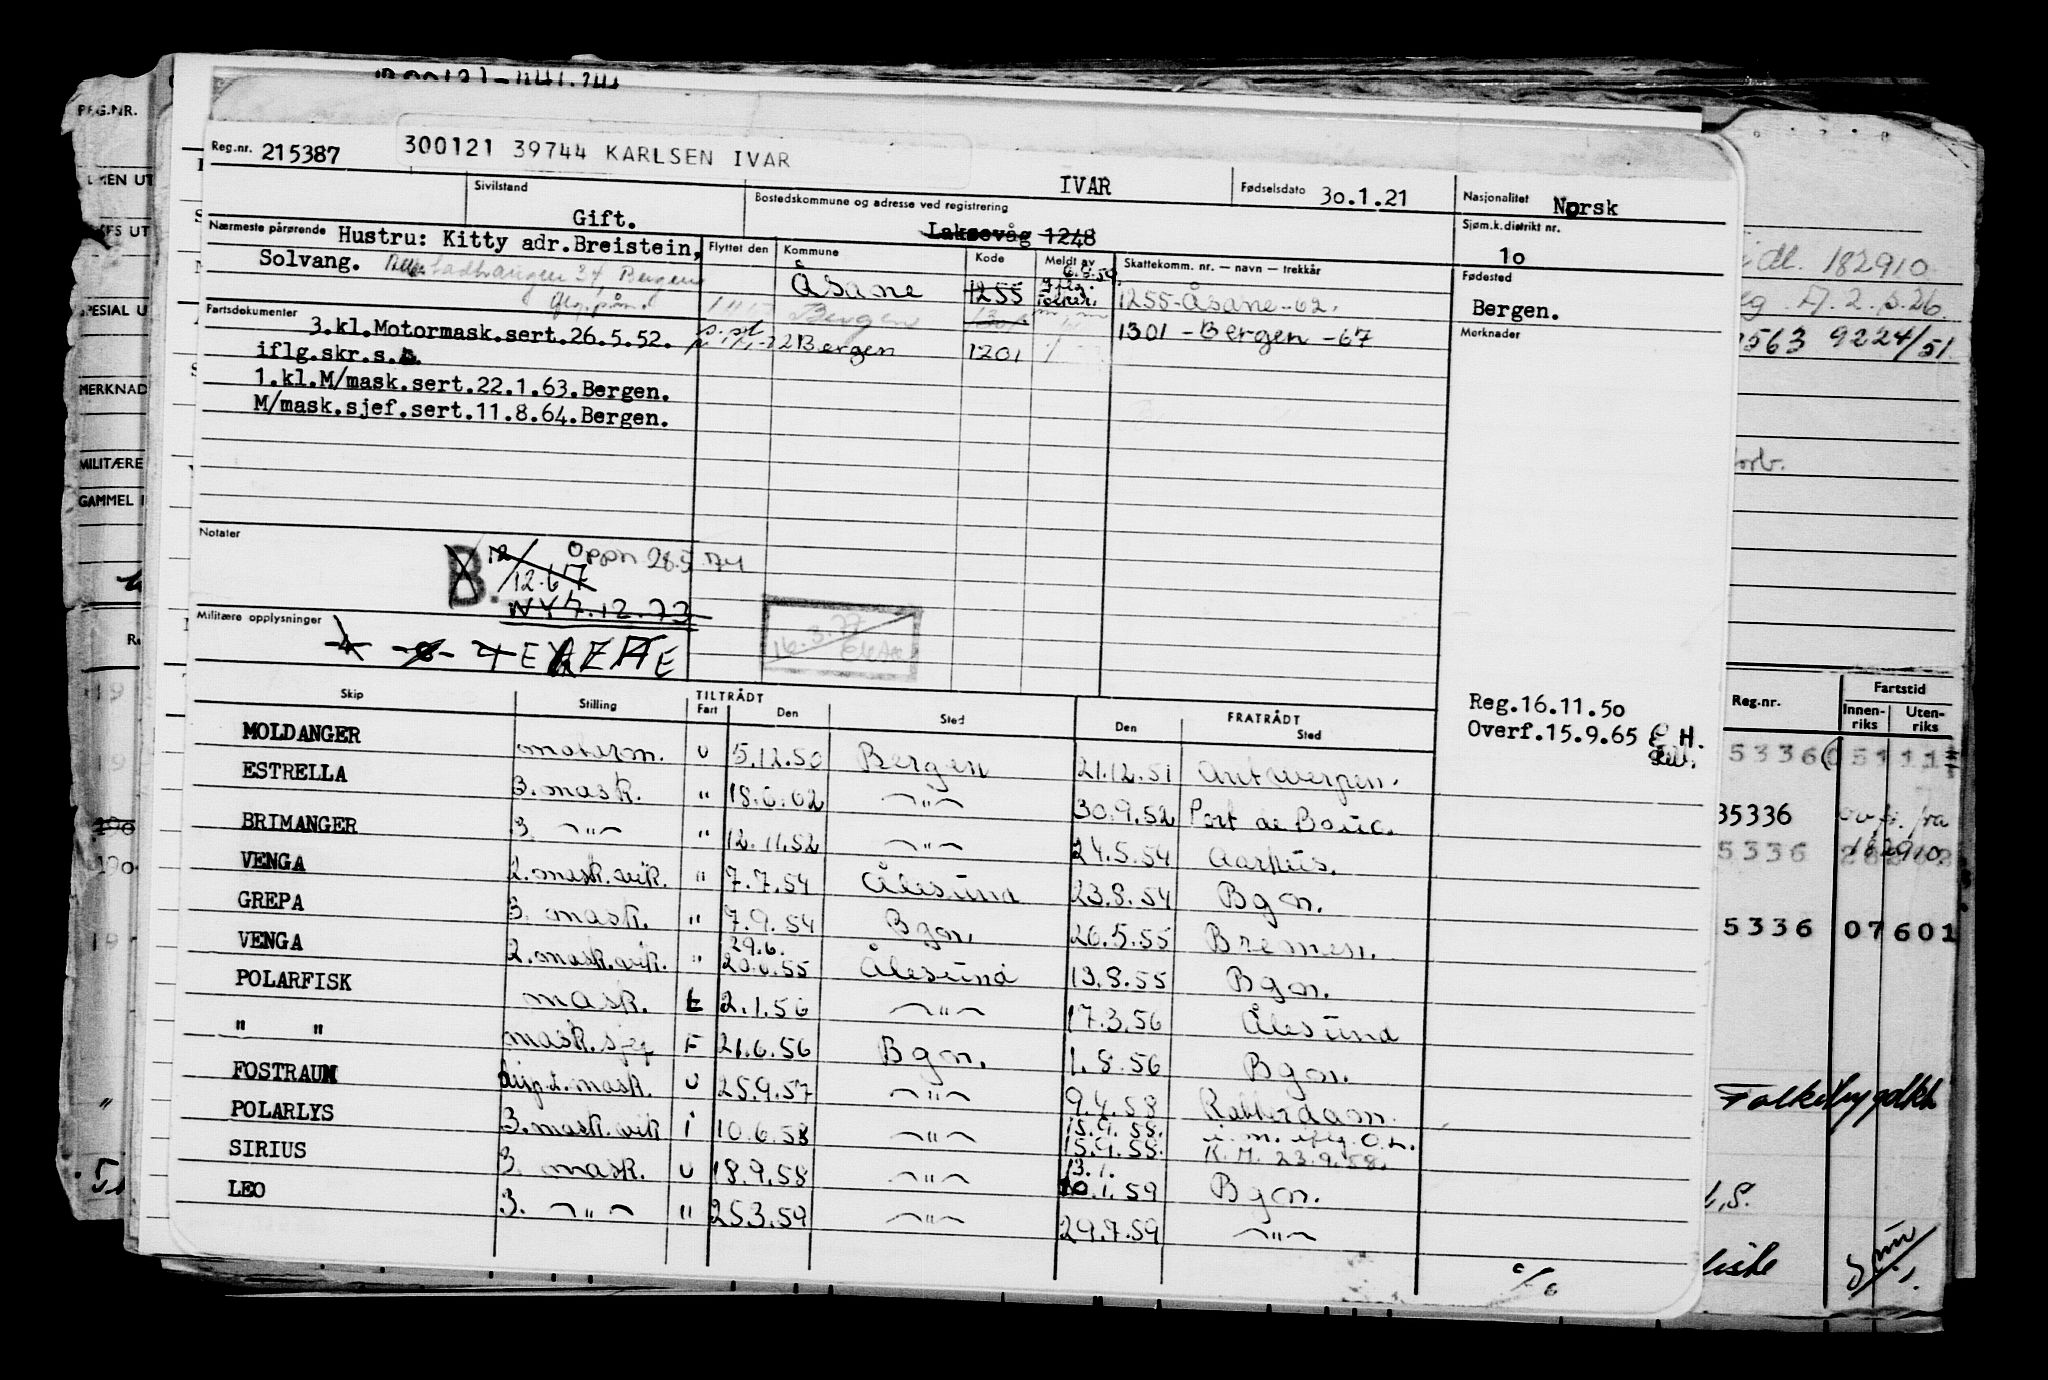 REG.NR.
Reg.nr. 215387
300121 39744 KARLSEN IVAR
IVAR
Fødselsdato 30.1.21
Nasjonalitet Norsk
Sivilstand
Gift.
Bostedskommune og adresse ved registrering
Laksevåg 1248
Sjøm.k.distrikt nr.
10
Nærmeste pårørende Hustru: Kitty adr.Breistein,
Solvang.
34, Bergen
Flyttet den Kommune Kode Meldt av Skattekomm. nr. — navn — trekkår
Åsane 1255 1255-Åsane-62.
Bergen
Bergen 1201 1301-Bergen-67
Fødested
Bergen.
Merknader
Fartsdokumenter
3.kl.Motormask.sert.26.5.52.
iflg.skr.s.
1.kl.M/mask.sert.22.1.63.Bergen.
M/mask.sjef.sert.11.8.64.Bergen.
Notater
B. 12/12.67 Oppn 28.5.74
NY 7.12.73
Militære opplysninger
16.3.77
Reg.16.11.50
Overf.15.9.65 E.H.
Skip Stilling TILTRÅDT FRATRÅDT
Fart Den Sted Den Sted
MOLDANGER motorm. U 5.12.50 Bergen 21.12.51 Antwerpen.
ESTRELLA 3. mask. " 18.6.52 —"— 30.9.52 Port de Bouc.
BRIMANGER 3. —"— " 12.11.52 —"— 24.5.54 Aarhus.
VENGA 2. mask.vik. " 7.7.54 Ålesund 23.8.54 Bgn.
GREPA 3. mask. " 7.9.54 Bgn. 26.5.55 Bremen.
29.6.
VENGA 2. mask.vik. " 20.6.55 Ålesund 13.8.55 Bgn.
POLARFISK mask. F 2.1.56 —"— 17.3.56 Ålesund
" " mask.sjef F 21.6.56 Bgn. 1.8.56 Bgn.
FOSTRAUM disp.2.mask. U 25.9.57 —"— 9.4.58 Rotterdam.
POLARLYS 3. mask.vik i 10.6.58 —"— 15.9.58. i.m. iflg. O.L.
15.9.58. R.M. 23.9.58.
13.1.
SIRIUS 3. mask. U 18.9.58 —"— 10.1.59 Bgn.
LEO 3. —"— " 25.3.59 —"— 29.7.59 —"—
SPESIAL U
MERKNAD
MILITÆRE
GAMMEL
182910
A. 2. s.26
9224/51
Reg.nr. Fartstid
Innen-riks Uten-riks
5336
35336 overf. fra
5336 182910
5336 07601